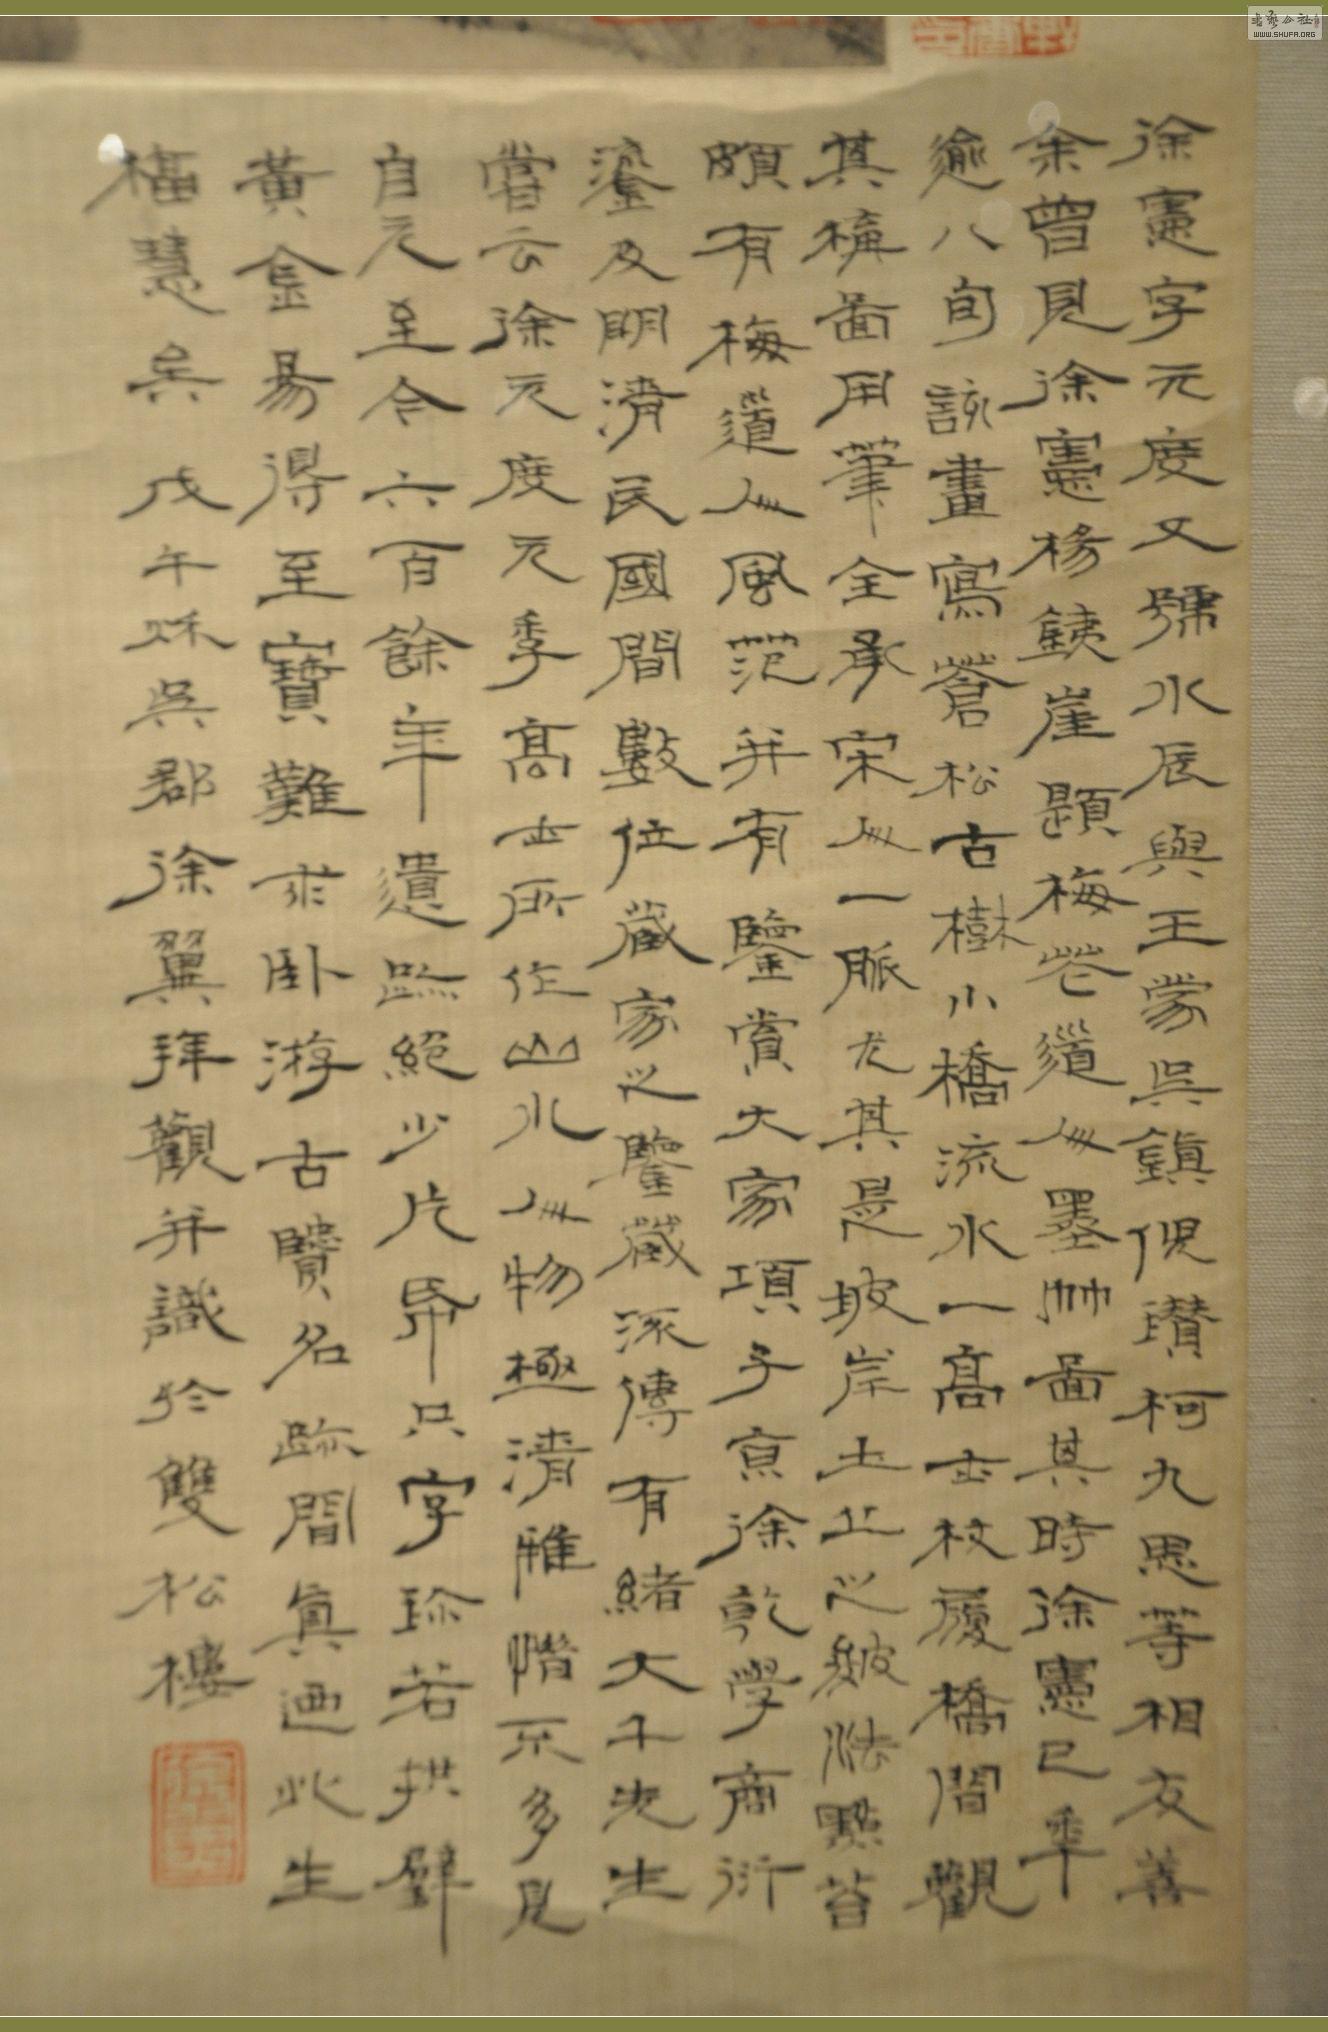 徐憲字元度又號水辰與王蒙吳鎮倪瓚柯九思等相友善
余曾見徐憲楊鐵崖題梅花道人墨竹圖其時徐憲已年
逾八旬該畫寫蒼松古樹小橋流水一高士杖履橋間觀
其橫圖用筆全承宋人一脈尤其是坡岸土丘之皴法點苔
頗有梅道人風范并有鑒賞大家項子京徐乾學商衍
鎏及明清民國間數位藏家之鑒藏流傳有緒大千先生
嘗云徐元度元季高士所作山水人物極清雅惜不多見
自元至今六百餘年遺跡絕少片帋只字珍若拱璧
黃金易得至寶難求臥游古贒名跡間真迺此生
福慧矣 戊午秌吳郡徐翼拜觀并識於雙松樓
书艺公社
WWW.SHUFA.ORG